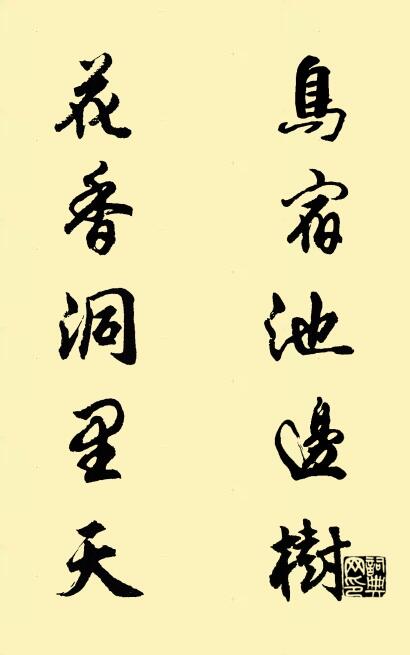 鳥宿池邊樹
花香洞里天
詞典网印